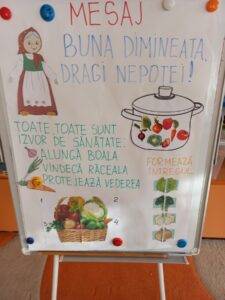 MESAJ
BUNA DIMINEAȚA,
DRAGI NEPOȚEI!
TOATE TOATE SUNT
IZVOR DE SĂNĂTATE:
ALUNGĂ BOALA
VINDECĂ RĂCEALA
PROTEJEAZĂ VEDEREA
FORMEAZĂ
ÎNTREGUL...
1
2
3
4